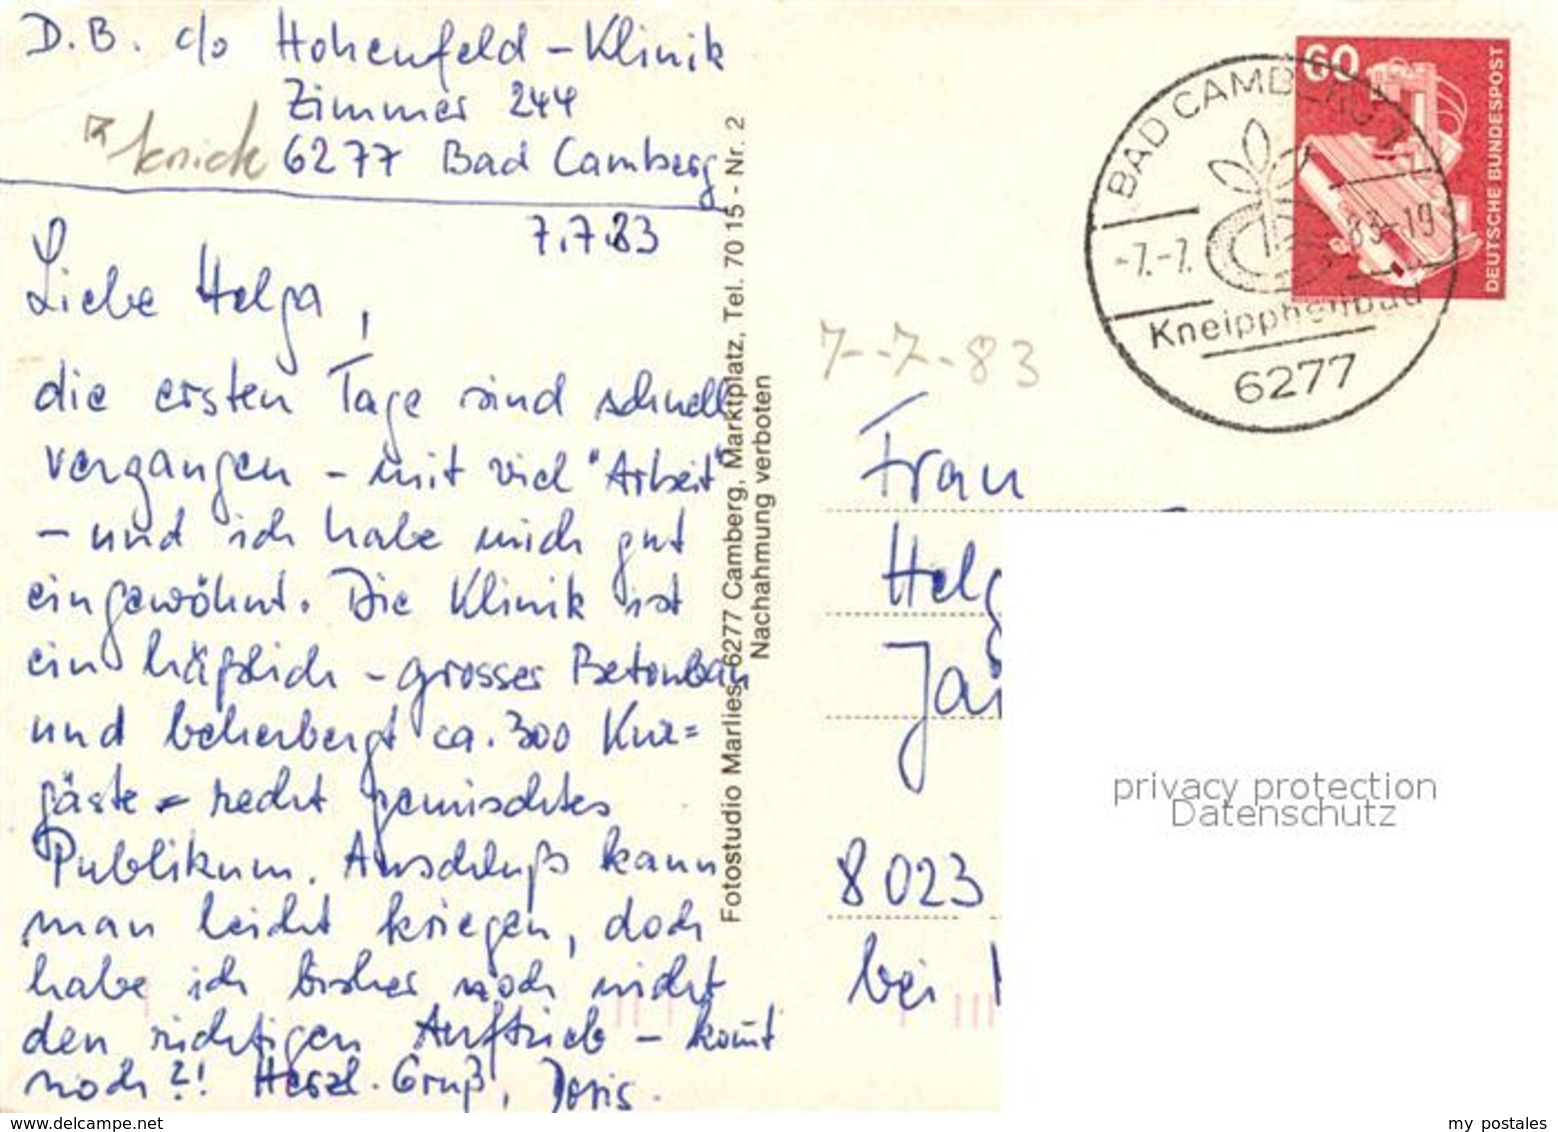 D.B. c/o Hohenfeld-Klinik
Zimmer 244
knick 6277 Bad Camberg
7.7.83
Liebe Helga,
die ersten Tage sind schnell
vergangen - mit viel "Arbeit"
- und ich habe mich gut
eingewöhnt. Die Klinik ist
ein häßlich-grosser Betonbau
und beherbergt ca. 300 Kur=
gäste - recht gemischtes
Publikum. Anschluß kann
man leicht kriegen, doch
habe ich bisher noch nicht
den richtigen Auftrieb - kommt
noch?! Herzl. Gruß, Doris.
Fotostudio Marlies, 6277 Camberg, Marktplatz, Tel. 70 15 - Nr. 2
Nachahmung verboten
60
DEUTSCHE BUNDESPOST
BAD CAMBERG 1
-7.-7. 83-19
Kneippheilbad
6277
7.-7.-83
Frau
Helg
8023
bei
privacy protection
Datenschutz
www.delcampe.net
my postales